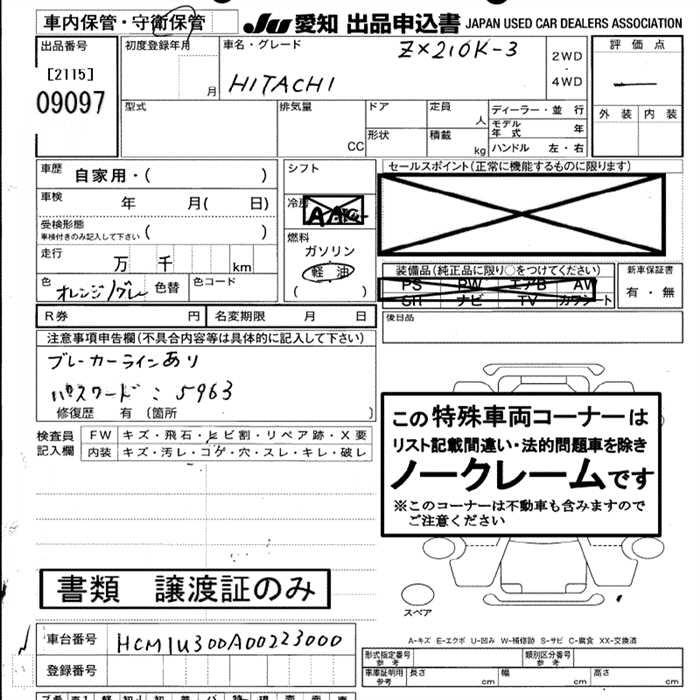 車内保管・守衛保管
JU 愛知 出品申込書 JAPAN USED CAR DEALERS ASSOCIATION
出品番号 初度登録年月 車名・グレード ZX210K-3 2WD・4WD 評価点
[2115]
09097 月 HITACHI 外装 内装
型式 排気量 CC ドア 定員 人 ディーラー・並行
形状 積載 kg モデル年式 年
ハンドル 左・右
車歴 自家用・( ) シフト セールスポイント(正常に機能するものに限ります)
車検 年 月( 日) 冷房
受検形態 車検付きのみ記入して下さい ( ) 燃料
ガソリン
軽油
( )
走行 万 千 km
装備品(純正品に限り○をつけてください) 新車保証書
PS PW エアB AW 有・無
SR ナビ TV カワシート
色 オレンジ/グレー 色替 色コード
R券 円 名変期限 月 日 後日品
注意事項申告欄(不具合内容等は具体的に記入して下さい)
ブレーカーラインあり
パスワード:5963
修復歴 有 (箇所 )
この特殊車両コーナーは
リスト記載間違い・法的問題車を除き
ノークレームです
※このコーナーは不動車も含みますので
ご注意ください
検査員記入欄 FW キズ・飛石・ヒビ割・リペア跡・X要
内装 キズ・汚レ・コゲ・穴・スレ・キレ・破レ
書類 譲渡証のみ
スペア
A-キズ E-エクボ U-凹み W-補修跡 S-サビ C-腐食 XX-交換済
車台番号 HCM1U300A00223000
登録番号
形式指定番号 参考 類別区分番号 参考
車庫証明用 参考 長さ cm 幅 cm 高さ cm